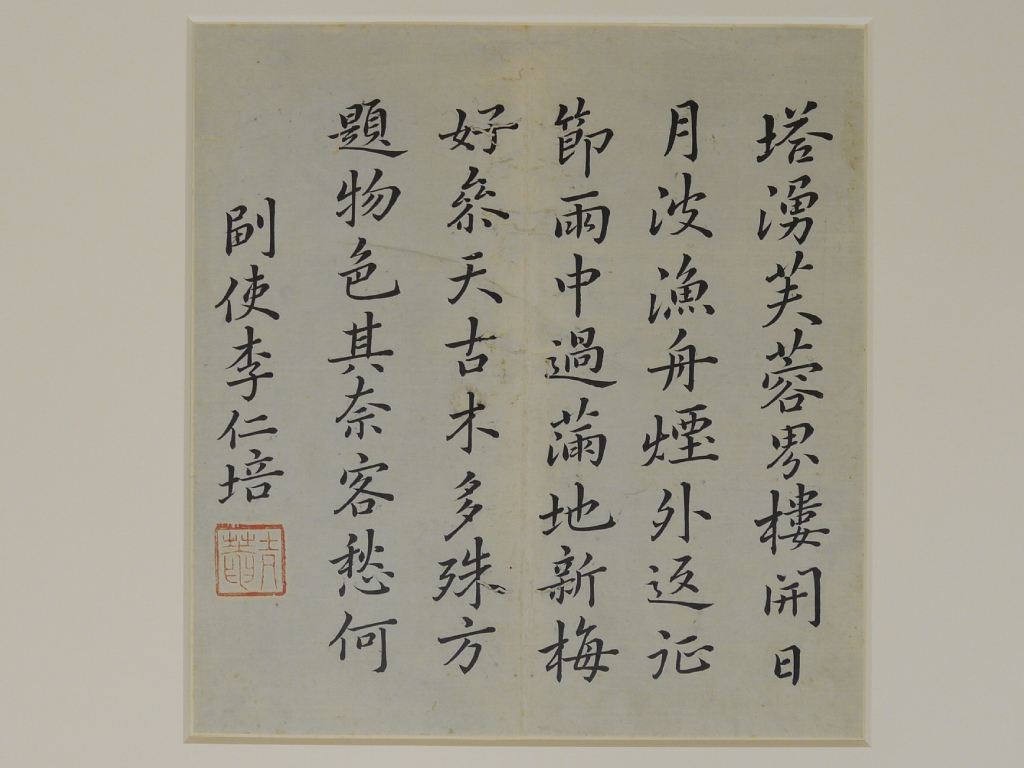 塔湧芙蓉界樓開日
月波漁舟煙外返征
節雨中過滿地新梅
好叅天古木多殊方
題物色其奈客愁何
副使李仁培